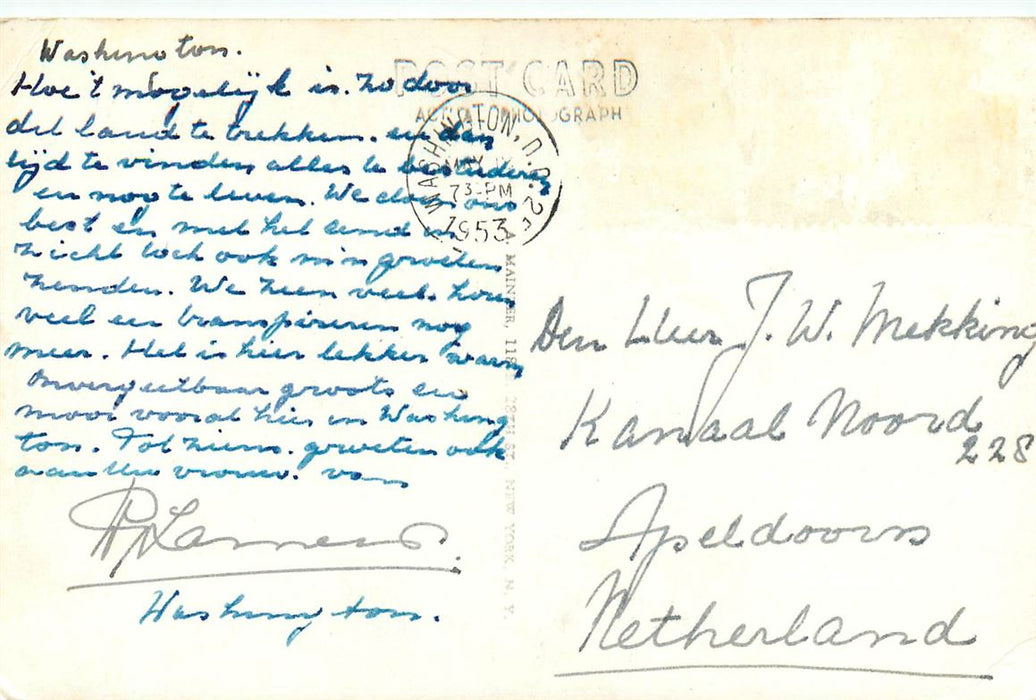 Washington.
Hoe 't mogelijk is. zo door
dit land te trekken. en dan
tijd te vinden alles te bestuderen
en nog te leven. We doen ons
best en met het eind in
zicht toch ook mijn groeten
zenden. We zien veel. horen
veel en transpireren nog
meer. Het is hier lekker warm
Onvergetbaar groots en
mooi vooral hier in Washing
ton. Tot ziens. groeten ook
aan Uw vrouw. van
Washington.
POST CARD
WASHINGTON, D.C. 2
MAY
730 PM
1953
MAINZER, 118 E. 28TH ST. NEW YORK, N. Y.
Den Heer J. W. Mekking
Kanaal Noord
228
Apeldoorn
Netherland